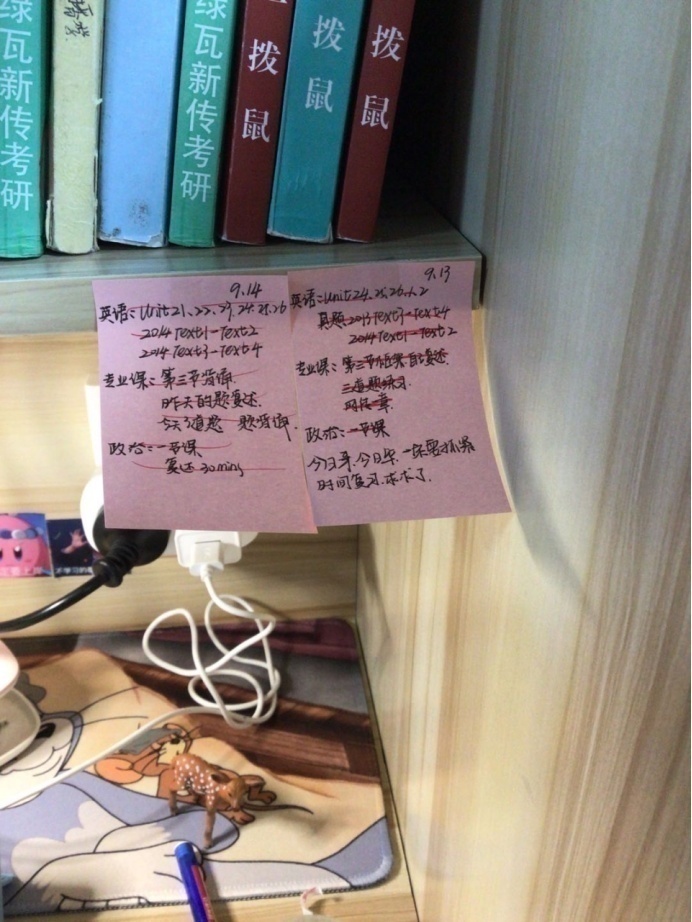 绿瓦新传考研
绿瓦新传考研
拨鼠
拨鼠
拨鼠
9.14
英语:Unit21、22、23、24、25、26
2014 Text1-Text2
2014 Text3-Text4
专业课:第三节背诵
昨天的题复述.
今天3道题 题背诵.
政治:一节课
复述30mins
9.13
英语:Unit24、25、26、1、2
真题:2013 Text3-Text4
2014 Text1-Text2
专业课:第三节
三道题练习.
政治:一节课
今日事.今日毕.一定要抓紧
时间复习.求求了.